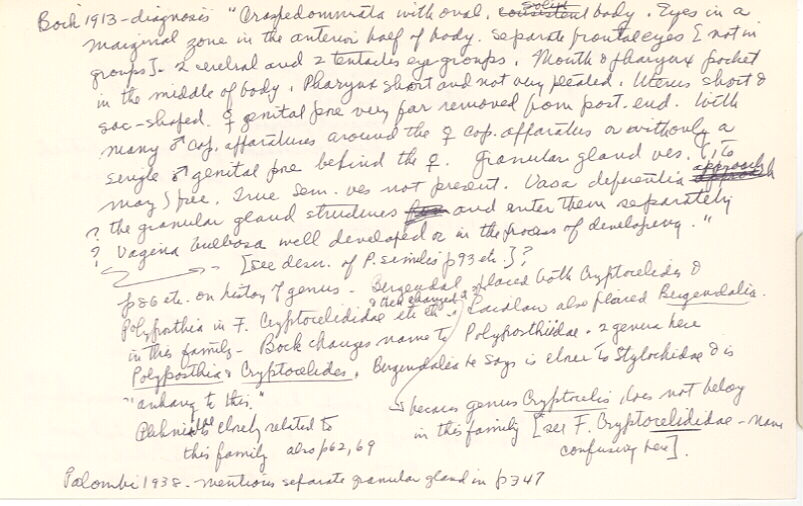 Bock 1913 - diagnosis "Craspedommata with oval, solid body. Eyes in a
marginal zone in the anterior half of body. Separate frontal eyes [not in
groups]. 2 cerebral and 2 tentacles eye groups. Mouth & pharynx pocket
in the middle of body. Pharynx short and not very pleated. Uterus short &
sac-shaped. ♀ genital pore very far removed from post. end. With
many ♂ cop. apparatuses around the ♀ cop. apparatus or with only a
single ♂ genital pore behind the ♀. Granular gland ves. (1 to
many) free. True sem. ves not present. Vasa deferentia approach
? the granular gland structures and enter them separately
? Vagina bulbosa well developed or in the process of developing."
[see descr. of P. similis p93 etc.]?
p86 etc. on history of genus - Bergendal placed both Cryptocelides &
Polyposthia in F. Cryptocelididae etc & then changed. Laidlaw also placed Bergendalia
in this family - Bock changes name to Polyposthiidae. 2 genera here
Polyposthia & Cryptocelides. Bergendalia he says is closer to Stylochidae & is
"anhang to this."
↳ because genus Cryptocelis does not belong
in this family [see F. Cryptocelididae - name
confusing here].
closely related to
this family also p62, 69
Palombi 1938 - mentions separate granular gland in p347